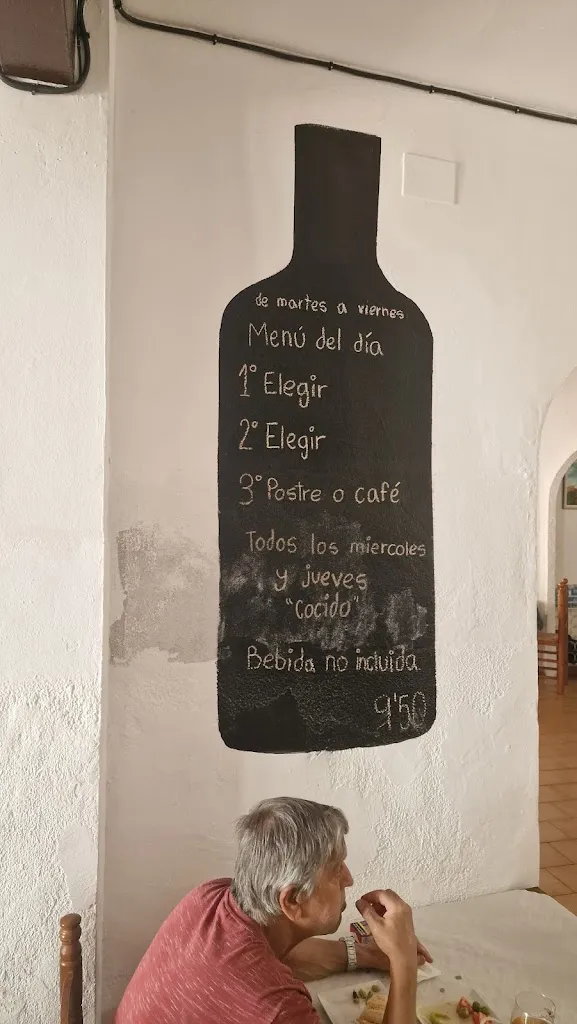 de martes a viernes
Menú del día
1º Elegir
2º Elegir
3º Postre o café
Todos los miercoles
y jueves
"Cocido"
Bebida no incluida
9'50